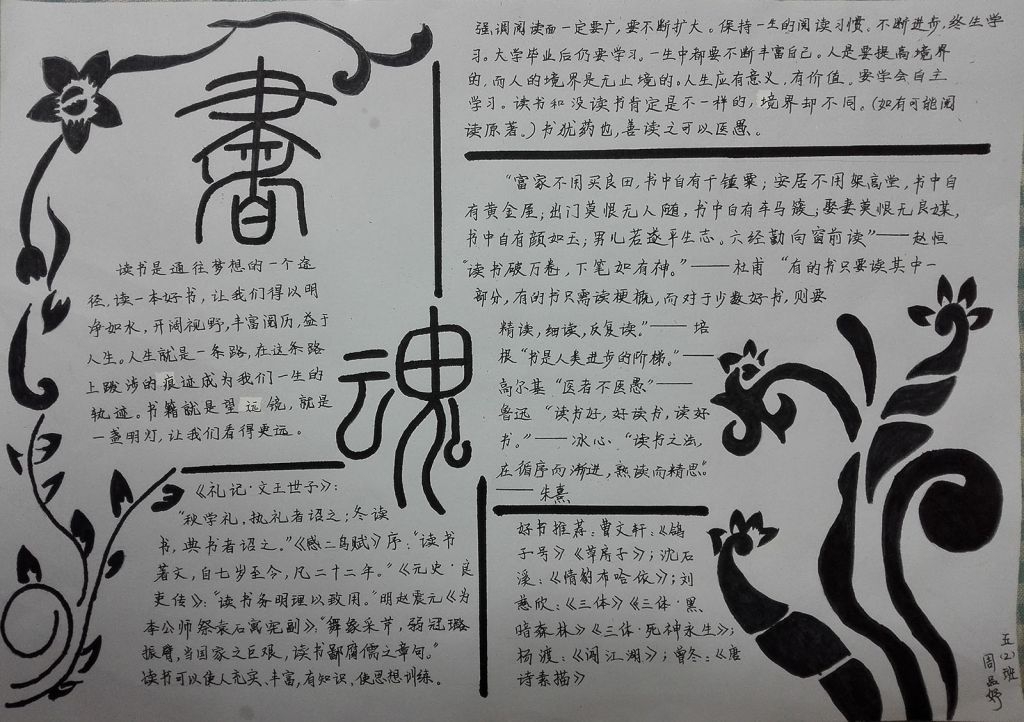 書
魂
强调阅读面一定要广，要不断扩大。保持一生的阅读习惯。不断进步，终生学
习。大学毕业后仍要学习。一生中都要不断丰富自己。人是要提高境界
的，而人的境界是无止境的。人生应有意义，有价值。要学会自主
学习。读书和没读书肯定是不一样的，境界却不同。（如有可能阅
读原著。）书犹药也，善读之可以医愚。
“富家不用买良田，书中自有千锺粟；安居不用架高堂，书中自
有黄金屋；出门莫恨无人随，书中自有车马簇；娶妻莫恨无良媒，
书中自有颜如玉；男儿若遂平生志。六经勤向窗前读”——赵恒
“读书破万卷，下笔如有神。”——杜甫 “有的书只要读其中一
部分，有的书只需读梗概，而对于少数好书，则要
精读，细读，反复读。”——培
根“书是人类进步的阶梯。”——
高尔基“医者不医愚”——
鲁迅 “读书好，好读书，读好
书。”——冰心、“读书之法，
在循序而渐进，熟读而精思。”
——朱熹
读书是通往梦想的一个途
径，读一本好书，让我们得以明
净如水，开阔视野，丰富阅历，益于
人生。人生就是一条路，在这条路
上跋涉的痕迹成为我们一生的
轨迹。书籍就是望远镜，就是
一盏明灯，让我们看得更远。
《礼记·文王世子》：
“秋学礼，执礼者诏之；冬读
书，典书者诏之。”《感二鸟赋》序：“读书
著文，自七岁至今，凡二十二年。”《元史·良
吏传》：“读书务明理以致用。”明赵震元《为
李公师祭袁石寓宪副》：“舞象采芹，弱冠璐
振膺，当国家之巨艰，读书鄙腐儒之章句。”
读书可以使人充实、丰富，有知识，使思想训练。
好书推荐：曹文轩：《鸽
子号》《草房子》；沈石
溪：《情豹布哈依》；刘
慈欣：《三体》《三体·黑
暗森林》《三体·死神永生》；
杨渡：《闯江湖》；曾冬：《唐
诗素描》
五（2）班
周